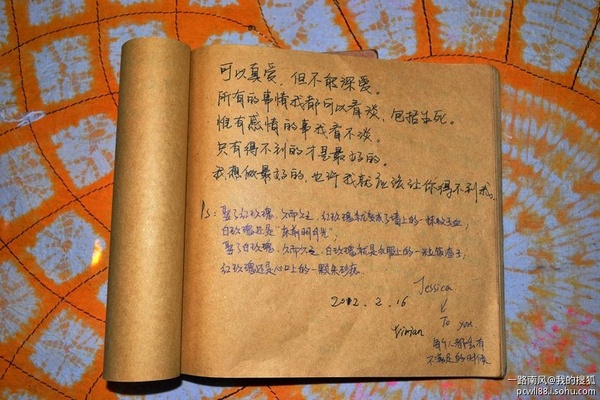 可以真爱,但不能深爱。
所有的事情我都可以看谈,包括生死。
惟有感情的事我看不谈。
只有得不到的才是最好的。
我想做最好的,也许我就应该让你得不到我。
Ps:娶了红玫瑰,久而久之,红玫瑰就变成了墙上的一抹蚊子血,
白玫瑰还是"床前明月光"。
娶了白玫瑰,久而久之,白玫瑰就是衣服上的一粒饭渣子,
红玫瑰还是心口上的一颗朱砂痣。
Jessica
2012.2.16
To you
Vivian
每个人都会有
不满足的时候
一路南风@我的搜狐
pcwli88.i.sohu.com